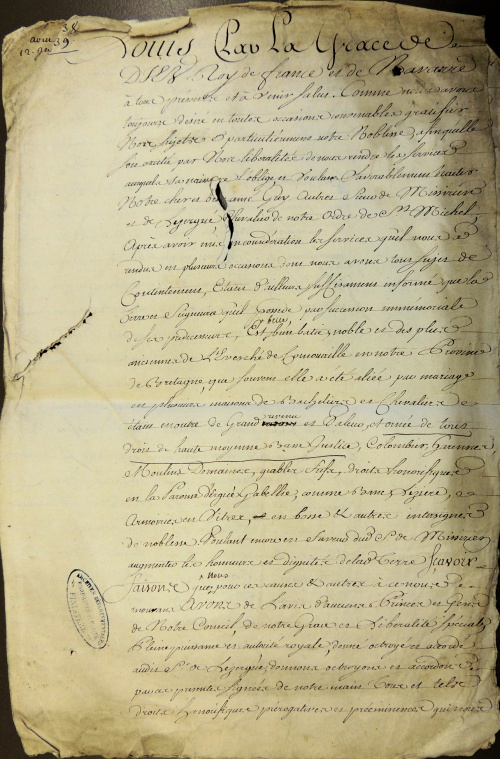 Aoust 39
Louis Par La Grace de
DIEU Roy de france et de Navarre
à tous présens et à venir salut. Comme nous avons
toujours désiré en toutes occasions convenables gratifier
Nos sujets et particulièrement notre Noblesse, afin qu'elle
soit par Nos libéralités de nous rendre les services
auxquels sa naissance l'oblige, et Voulant favorablement traiter
Notre cher et bien amé Guy Autret Sieur de Missirien
et de Lezergué Chevalier de notre Ordre de St. Michel,
Après avoir mis en considération les services qu'il nous a
rendus en plusieurs occasions dont nous avons tous sujets de
Contentement, Etant d'ailleurs suffisamment informé que la
Terre et Seigneurie qu'il possède par succession immémoriale
de ses prédécesseurs, Est belle bien batie, noble et des plus
anciennes de L'Evesché de Cornouaille en notre Province
de Bretagne, que souvent elle a été aliée par mariage
en plusieurs maisons de Bacheliers et Chevaliers
étant montré de Grand revenu et valeur, et ornée de tous
droits de haute moyenne basse Justice, Colombier, Garennes
Moulins Domaines, notables fiefs, droits honorifiques
en la Paroisse d'Ergué Gabellic, comme bancs, Lizière,
Armories en Vitres, en bosse et autres intersignes
de noblesse. Voulant encore en faveur dud. Sr. de Missirien
augmenter les honneurs et dignités de lad. Terre sçavoir
faisons que Nous pour ces causes et autres à ce nous
mouvans Avons de L'avis d'aucuns Princes et Gens
de Notre Conseil, de notre Grace et Libéralité spéciale
Pleine puissance et autorité royale, donné octroyé et accordé
audit Sr. de Lezergué, donnons octroyons et accordons
par ces présentes signées de notre main Tous et tels
droits honorifiques prérogatives et prééminences qui nous